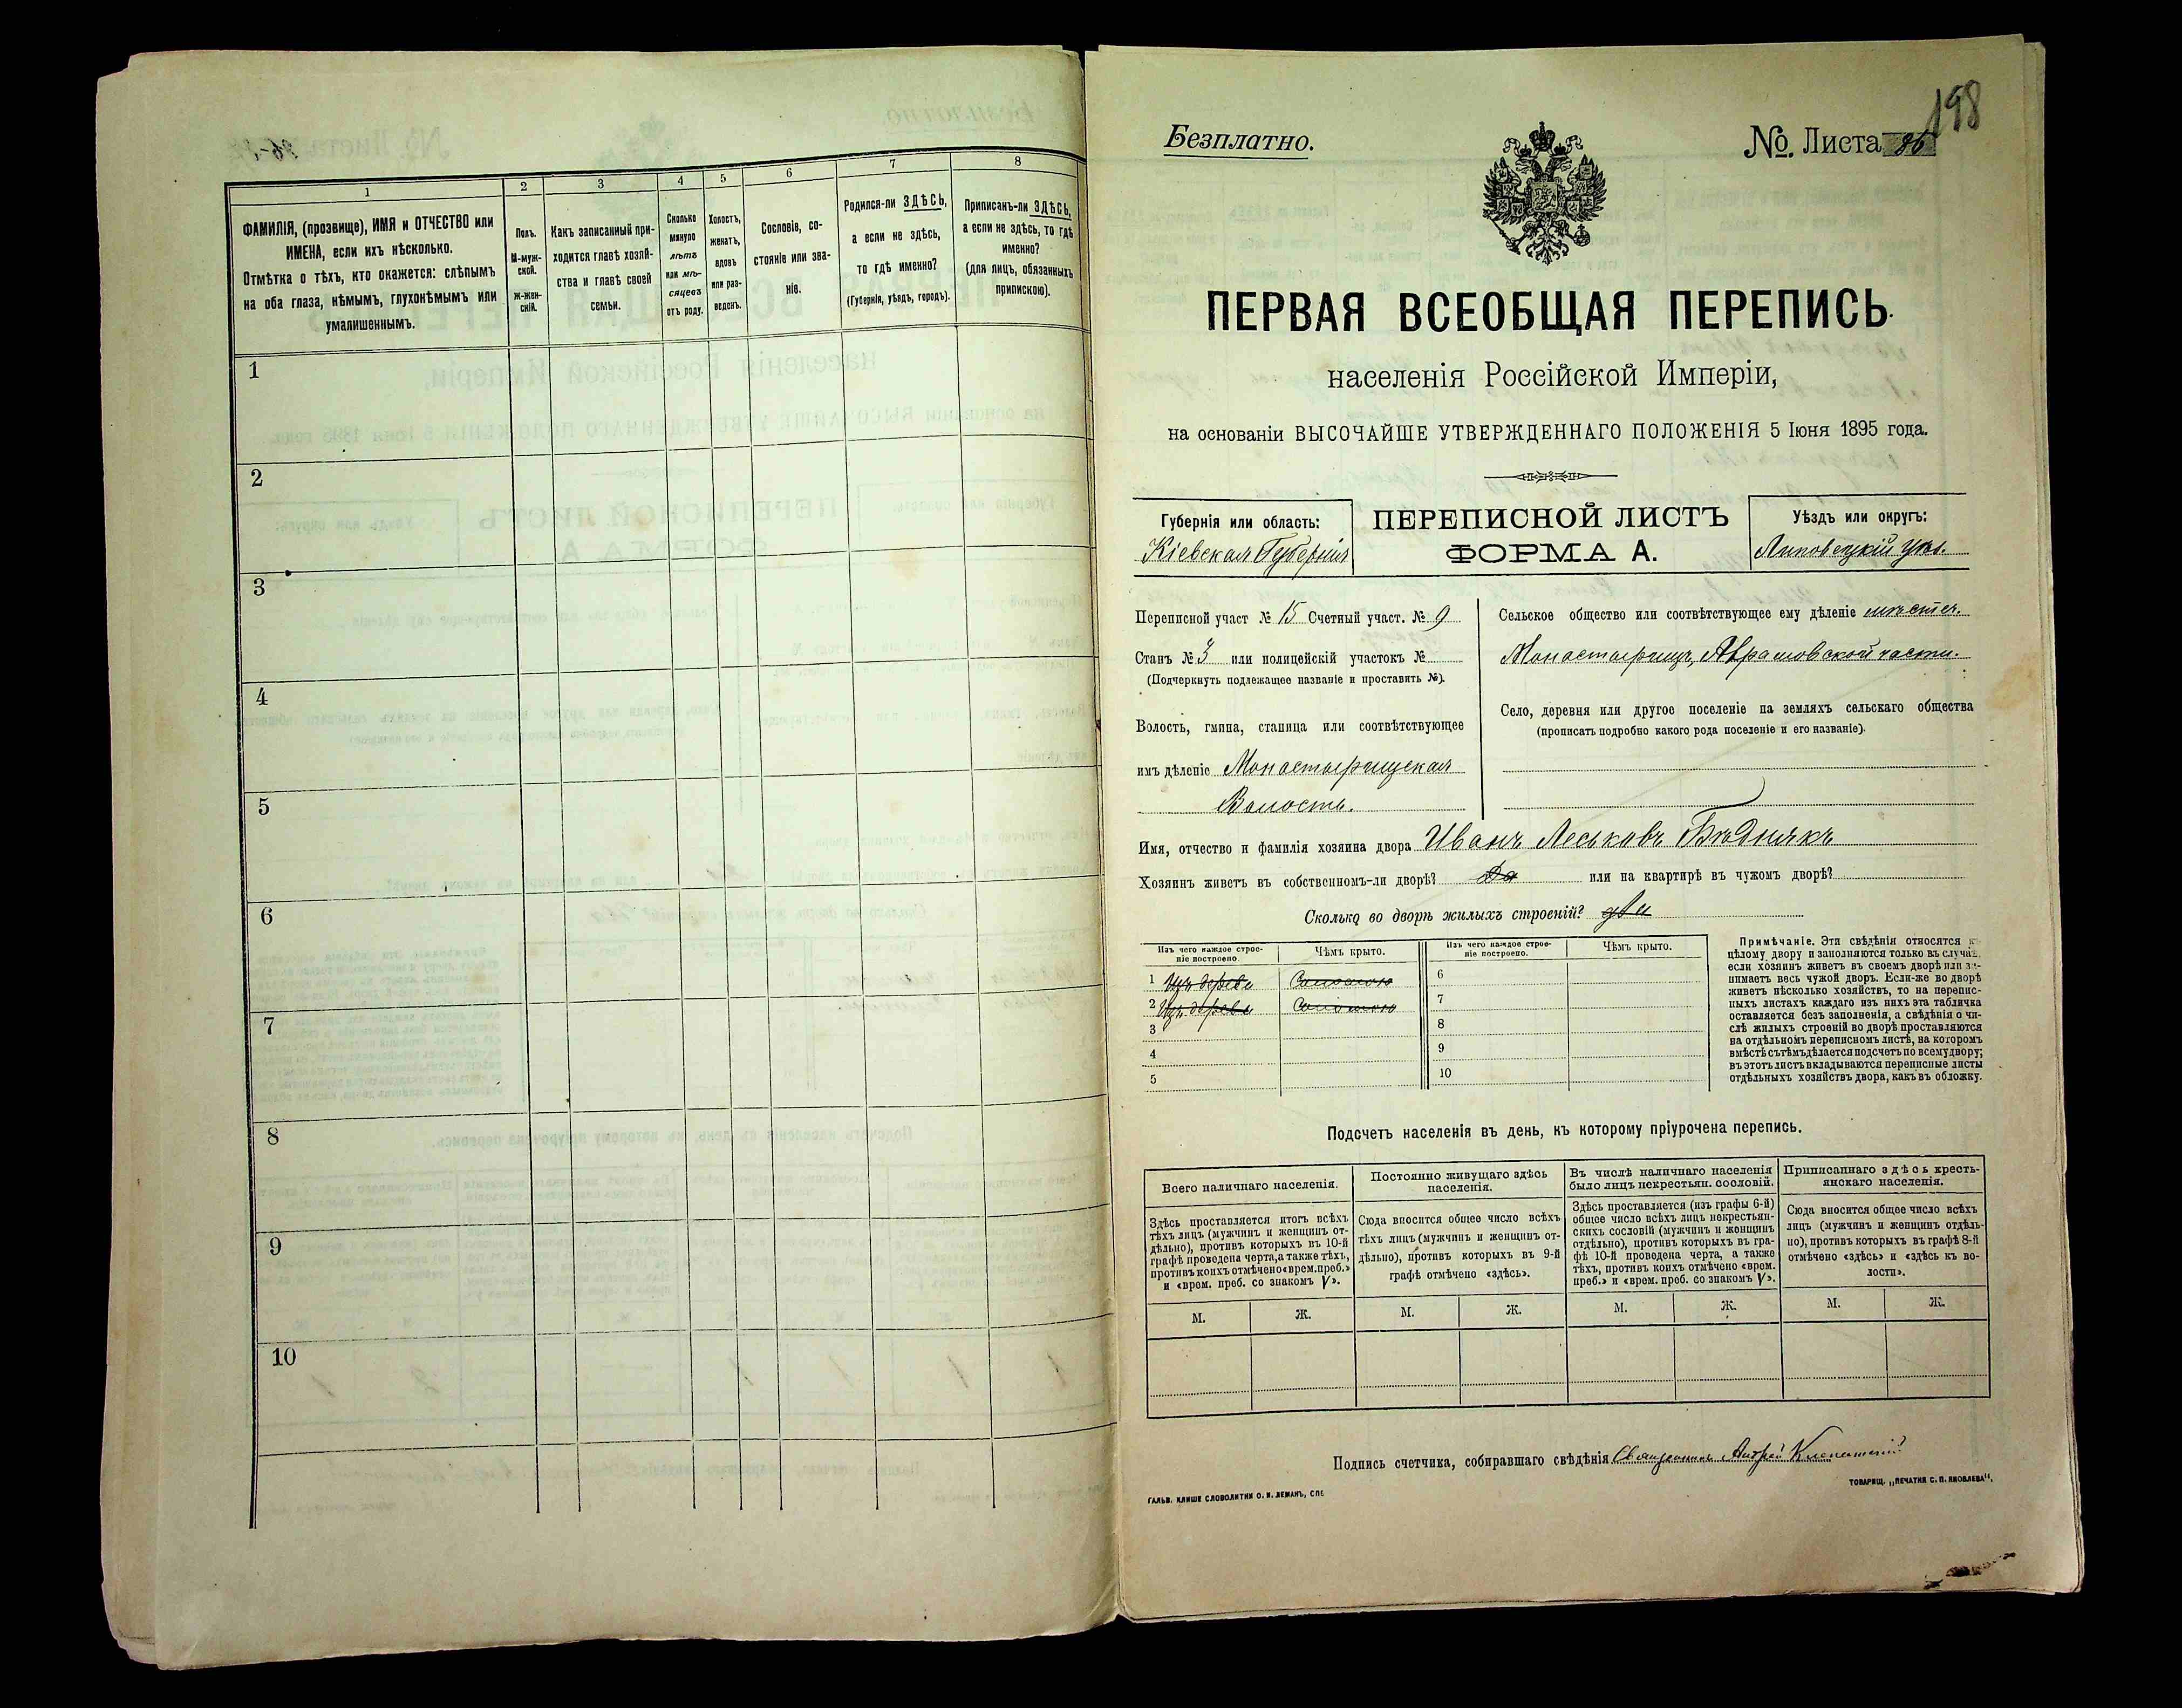 1
2
3
4
5
6
7
8
ФАМИЛІЯ, (прозвище), ИМЯ и ОТЧЕСТВО или
ИМЕНА, если ихъ нѣсколько.
Отмѣтка о тѣхъ, кто окажется: слѣпымъ
на оба глаза, нѣмымъ, глухонѣмымъ или
умалишеннымъ.
Полъ.
М-муж-
ской.
Ж-жен-
скій.
Какъ записанный при-
ходится главѣ хозяй-
ства и главѣ своей
семьи.
Сколько
минуло
лѣтъ
или мѣ-
сяцевъ
отъ роду.
Холостъ,
женатъ,
вдовъ
или раз-
веденъ.
Сословіе, со-
стояніе или зва-
ніе.
Родился-ли ЗДѢСЬ,
а если не здѣсь,
то гдѣ именно?
(Губернія, уѣздъ, городъ).
Приписанъ-ли ЗДѢСЬ,
а если не здѣсь, то гдѣ
именно?
(для лицъ, обязанныхъ
припискою).
1
2
3
4
5
6
7
8
9
10
198
Безплатно.
№. Листа 86
ПЕРВАЯ ВСЕОБЩАЯ ПЕРЕПИСЬ
населенія Россійской Имперіи,
на основаніи ВЫСОЧАЙШЕ УТВЕРЖДЕННАГО ПОЛОЖЕНІЯ 5 Іюня 1895 года.
Губернія или область:
Кіевская Губернія
ПЕРЕПИСНОЙ ЛИСТЪ
ФОРМА А.
Уѣздъ или округъ:
Липовецкій уѣз.
Переписной участ № 15 Счетный участ. № 9
Станъ № 3 или полицейскій участокъ №
(Подчеркнуть подлежащее названіе и проставить №).
Волость, гмина, станица или соотвѣтствующее
имъ дѣленіе Монастырищская
Волость.
Сельское общество или соотвѣтствующее ему дѣленіе мѣстеч.
Монастырищъ, Аврамовской части.
Село, деревня или другое поселеніе на земляхъ сельскаго общества
(прописать подробно какого рода поселеніе и его названіе).
Имя, отчество и фамилія хозяина двора Иванъ Леськовъ Бѣднякъ
Хозяинъ живетъ въ собственномъ-ли дворѣ? Да или на квартирѣ въ чужомъ дворѣ?
Сколько во дворѣ жилыхъ строеній? два
Изъ чего каждое строе-
ніе построено.
Чѣмъ крыто.
Изъ чего каждое строе-
ніе построено.
Чѣмъ крыто.
1 Изъ дерева Соломою
2 Изъ дерева Соломою
3
4
5
6
7
8
9
10
Примѣчаніе. Эти свѣдѣнія относятся къ
цѣлому двору и заполняются только въ случаѣ,
если хозяинъ живетъ въ своемъ дворѣ или за-
нимаетъ весь чужой дворъ. Если-же во дворѣ
живетъ нѣсколько хозяйствъ, то на перепис-
ныхъ листахъ каждаго изъ нихъ эта табличка
оставляется безъ заполненія, а свѣдѣнія о чи-
слѣ жилыхъ строеній во дворѣ проставляются
на отдѣльномъ переписномъ листѣ, на которомъ
вмѣстѣ съ тѣмъ дѣлается подсчетъ по всему двору;
въ этотъ листъ вкладываются переписные листы
отдѣльныхъ хозяйствъ двора, какъ въ обложку.
Подсчетъ населенія въ день, къ которому пріурочена перепись.
Всего наличнаго населенія.
Здѣсь проставляется итогъ всѣхъ
тѣхъ лицъ (мужчинъ и женщинъ от-
дѣльно), противъ которыхъ въ 10-й
графѣ проведена черта, а также тѣхъ,
противъ коихъ отмѣчено «врем. преб.»
и «врем. преб. со знакомъ V».
Постоянно живущаго здѣсь
населенія.
Сюда вносится общее число всѣхъ
тѣхъ лицъ (мужчинъ и женщинъ от-
дѣльно), противъ которыхъ въ 9-й
графѣ отмѣчено «здѣсь».
Въ числѣ наличнаго населенія
было лицъ некрестьян. сословій.
Здѣсь проставляется (изъ графы 6-й)
общее число всѣхъ лицъ некрестьян-
скихъ сословій (мужчинъ и женщинъ
отдѣльно), противъ которыхъ въ гра-
фѣ 10-й проведена черта, а также
тѣхъ, противъ коихъ отмѣчено «врем.
преб.» и «врем. преб. со знакомъ V».
Приписаннаго здѣсь кресть-
янскаго населенія.
Сюда вносится общее число всѣхъ
лицъ (мужчинъ и женщинъ отдѣль-
но), противъ которыхъ въ графѣ 8-й
отмѣчено «здѣсь» и «здѣсь къ во-
лости».
М. Ж. М. Ж. М. Ж. М. Ж.
Подпись счетчика, собиравшаго свѣдѣнія Священникъ Андрей
ГАЛЬВ. КЛИШЕ СЛОВОЛИТНИ О. И. ЛЕМАНЪ, СПБ.
ТОВАРИЩ. „ПЕЧАТНЯ С. П. ЯКОВЛЕВА".